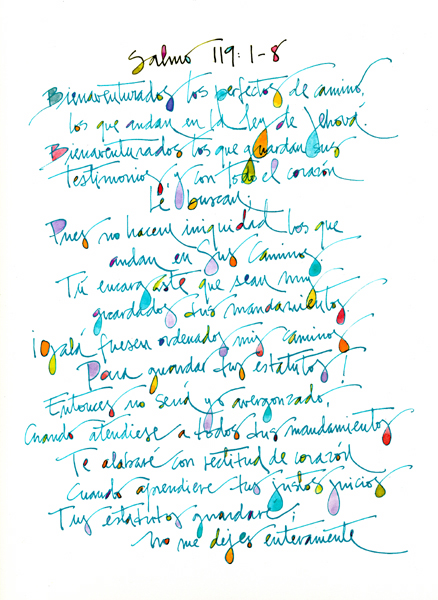 Salmo 119:1-8
Bienaventurados los perfectos de camino,
los que andan en la Ley de Jehová.
Bienaventurados los que guardan sus
testimonios, y con todo el corazón
Le buscan;
Pues no hacen iniquidad los que
andan en Sus Caminos.
Tú encargaste que sean muy
guardados tus mandamientos.
¡Ojalá fuesen ordenados mis caminos
Para guardar tus estatutos!
Entonces no sería yo avergonzado,
Cuando atendiese a todos tus mandamientos
Te alabaré con rectitud de corazón
Cuando aprendiere tus justos juicios
Tus estatutos guardaré;
No me dejes enteramente